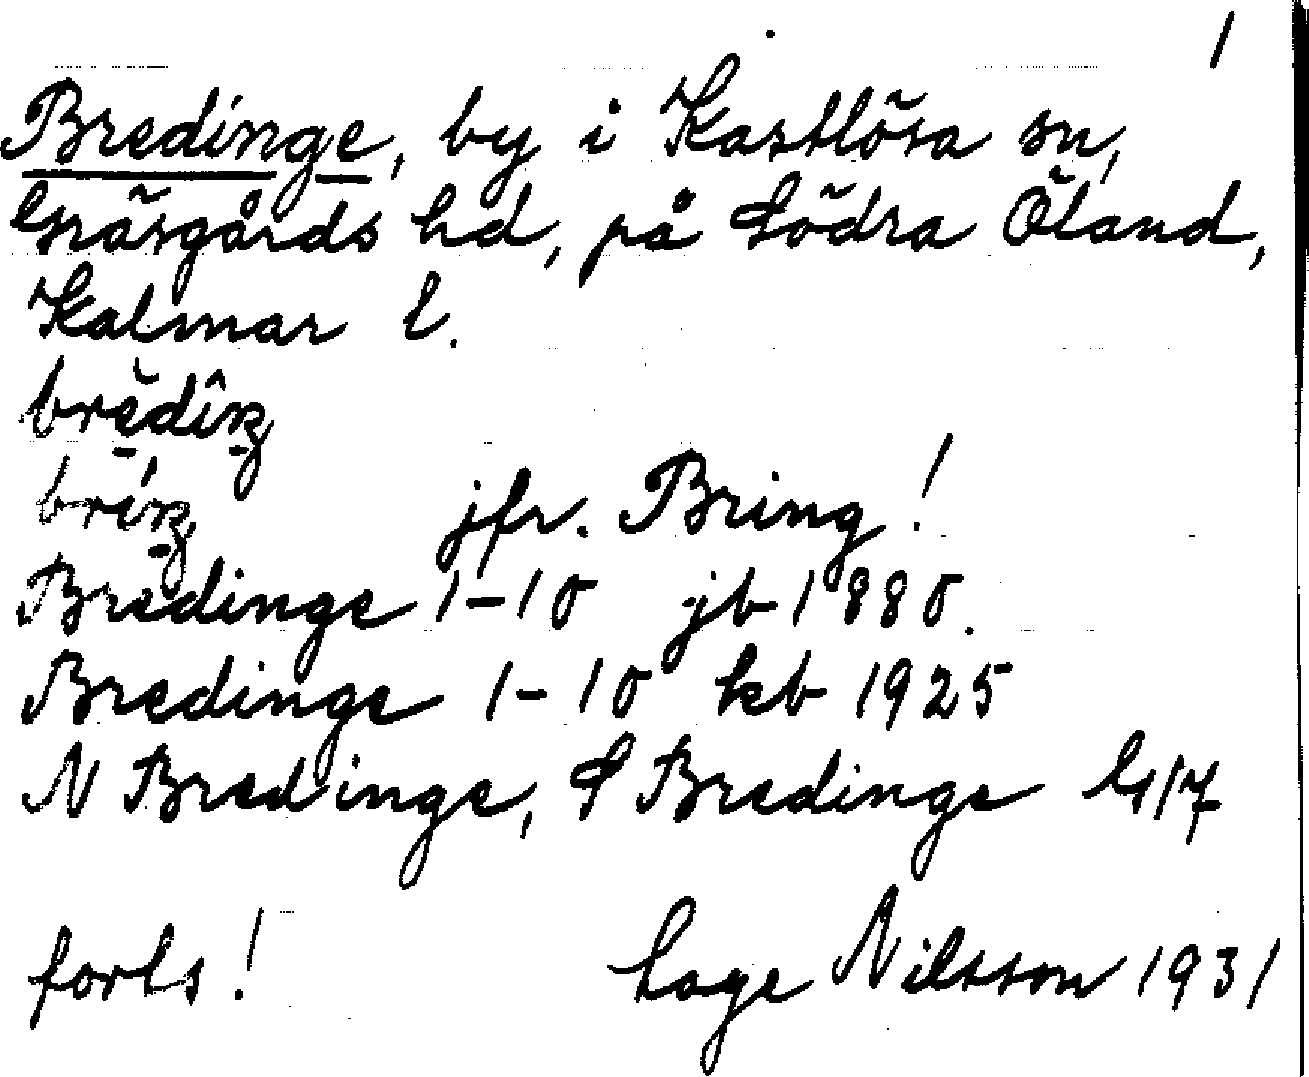 1
Bredinge, by i Kastlösa sn,
Gräsgårds hd, på södra Öland,
Kalmar l.
jfr. Bring!
Bredinge 1-10 jb 1880.
Bredinge 1-10 kb 1925
N Bredinge, S Bredinge G17
forts! Lage Nilsson 1931